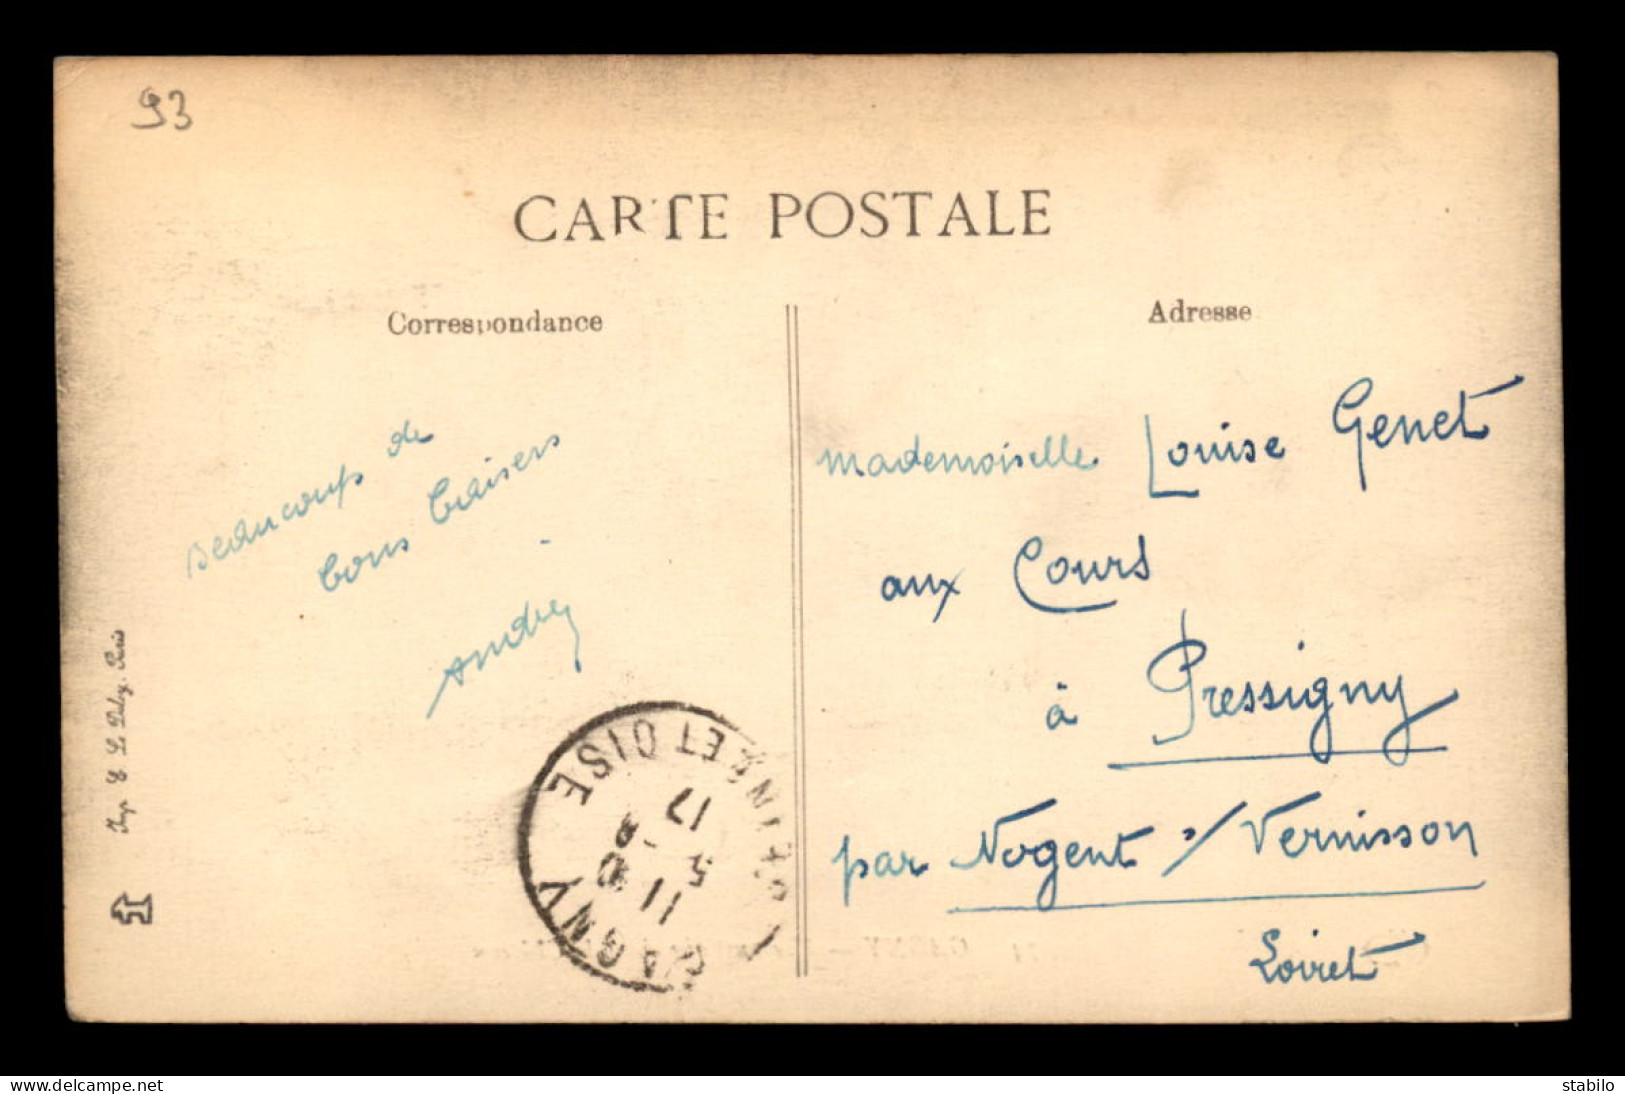 93
CARTE POSTALE
Correspondance
Adresse
Beaucoup de
bons baisers
André
mademoiselle Louise Genet
aux Cours
à Pressigny
par Nogent s/Vernisson
Loiret
Imp. E. Le Deley. Paris
GAGNY SEINE ET OISE
11
5
17
www.delcampe.net
stabilo